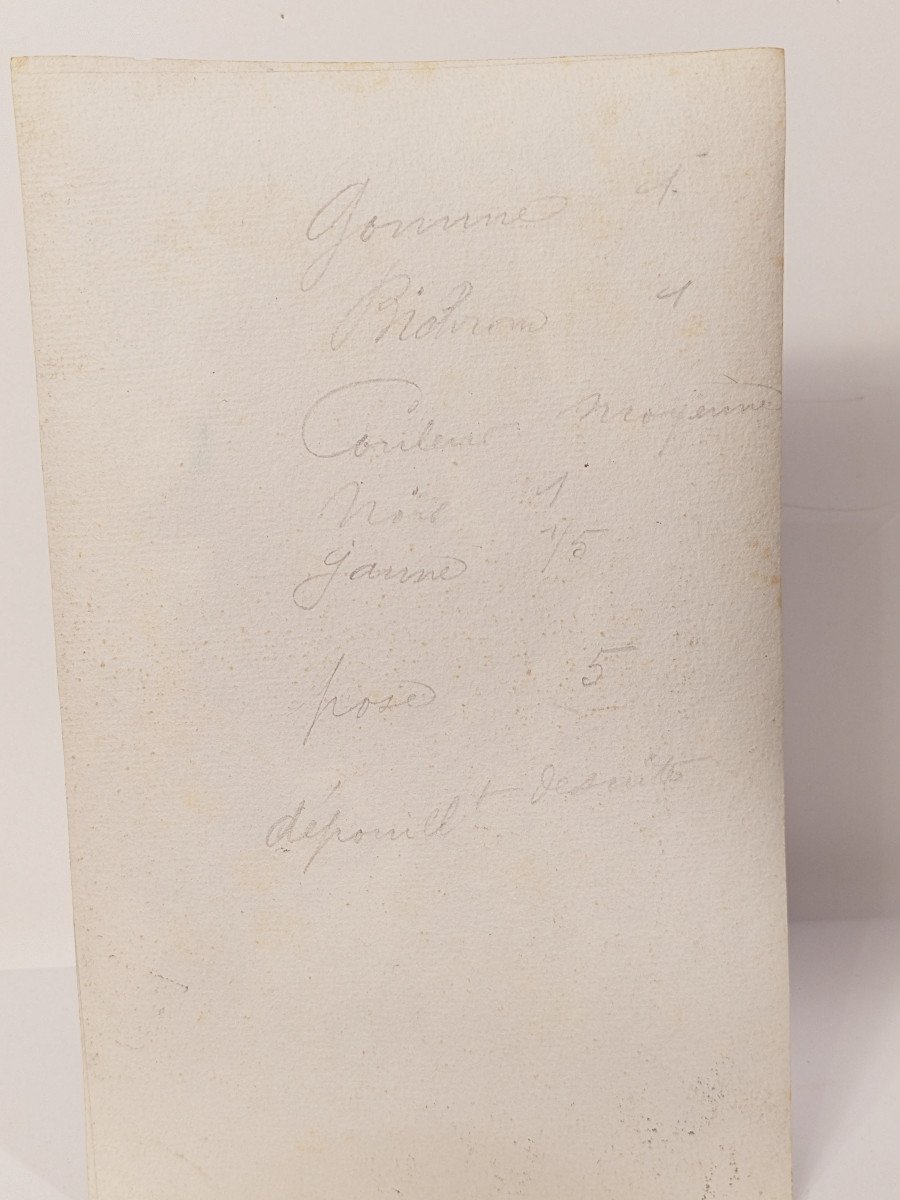 Gomme 1
Bichrom 1
Couleur moyenne
Noir 1
jaune 1/5
pose 5
dépouillt de suite